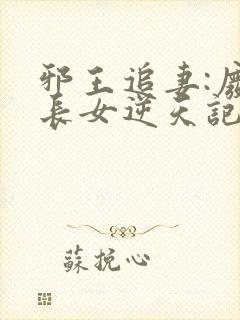 邪王追妻:廢
長女逆天記
蘇挽心